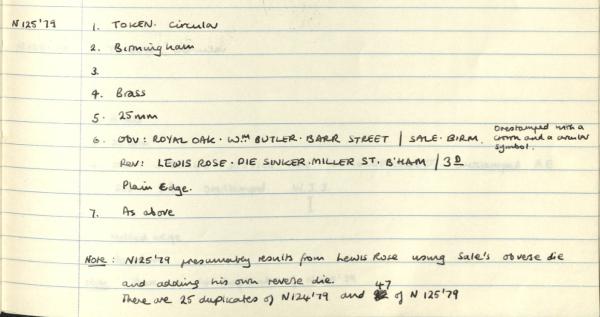 N125'79 1. TOKEN. Circular
2. Birmingham
3.
4. Brass
5. 25mm
6. OBV: ROYAL OAK · Wᴹ BUTLER · BARR STREET / SALE · BIRM. Overstamped with a crown and a circular symbol.
REV: LEWIS ROSE · DIE SINKER. MILLER ST. B'HAM / 3ᴰ
Plain Edge.
7. As above
Note: N125'79 presumably results from Lewis Rose using Sale's obverse die
and adding his own reverse die.
There are 25 duplicates of N124'79 and 47 of N125'79